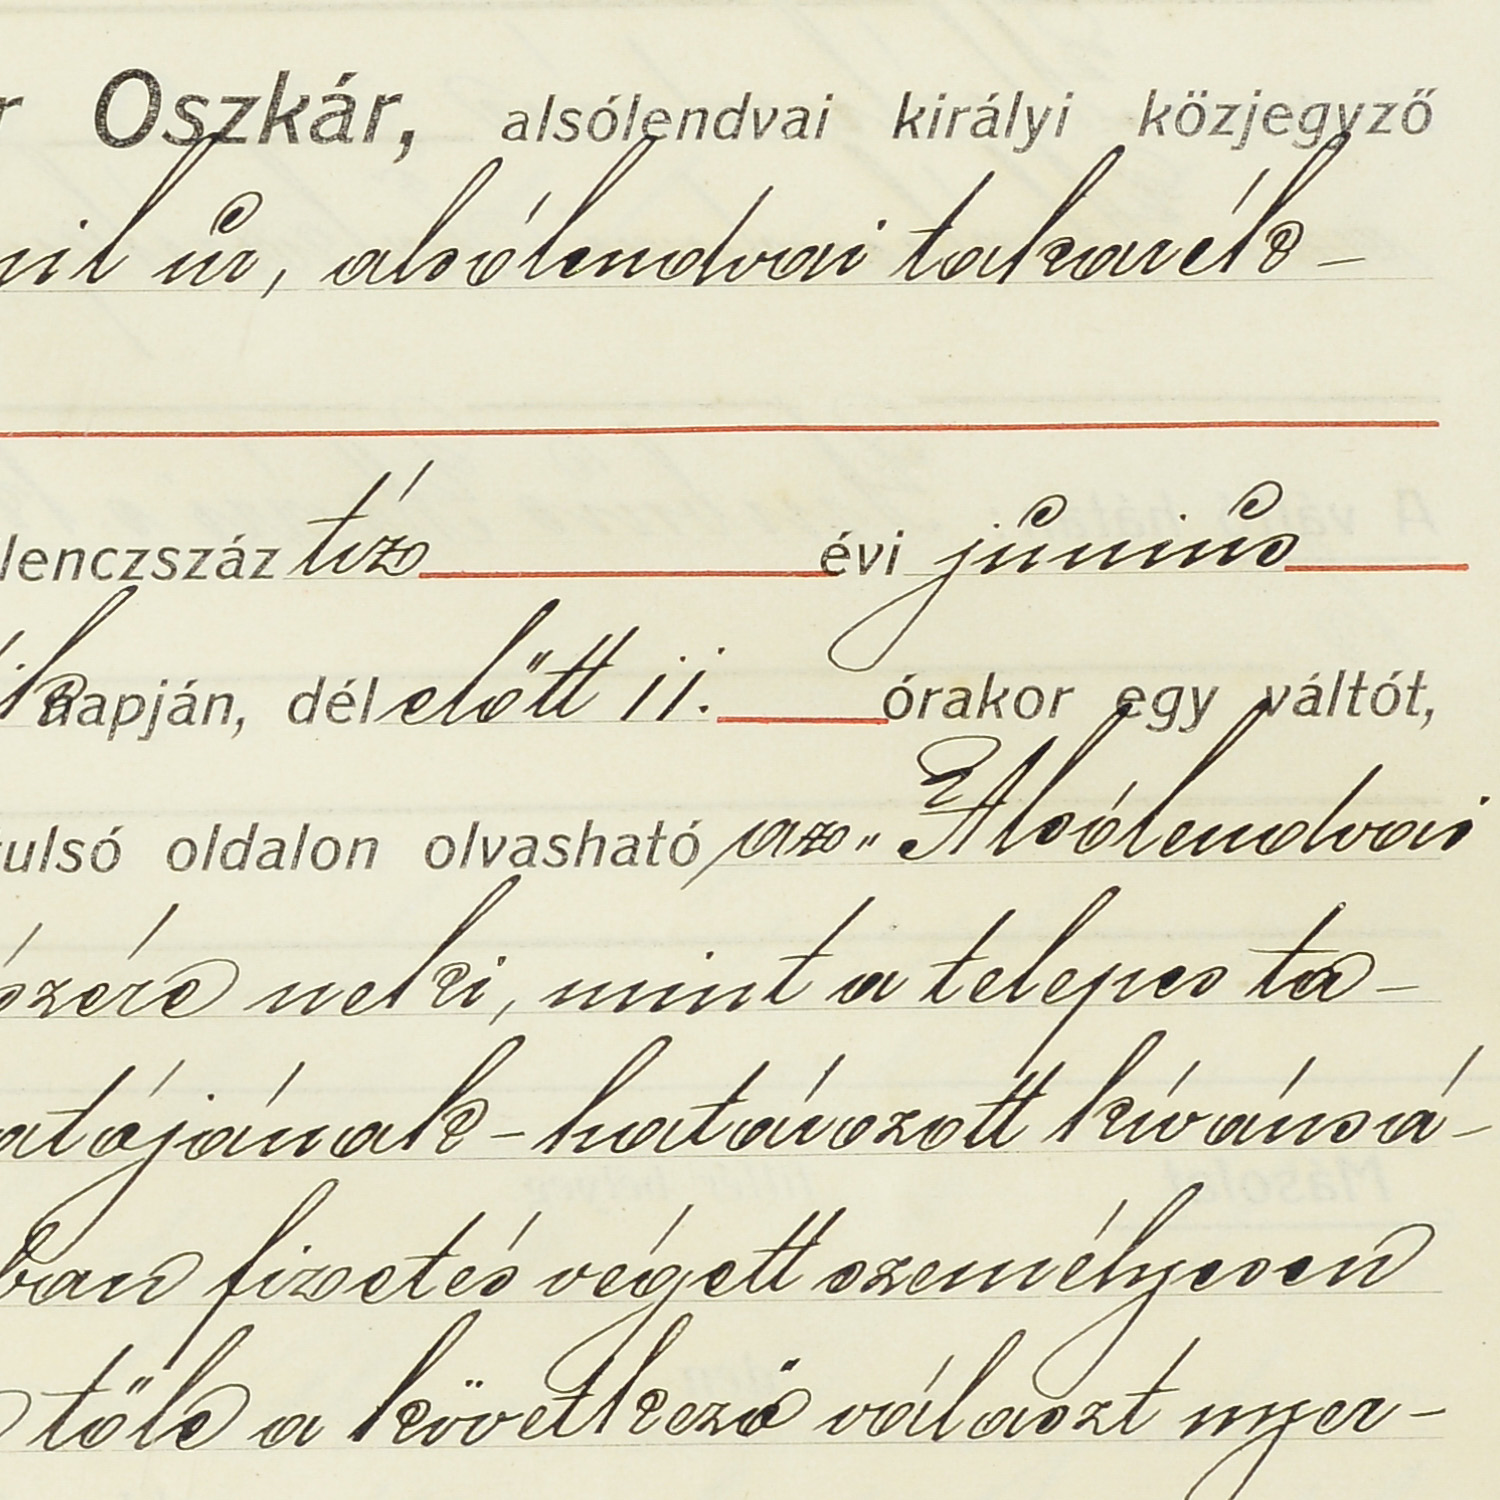 r Oszkár, alsólendvai királyi közjegyző
nil úr, alsólendvai takarék-
lenczszáz tíz évi június
ik napján, dél előtt 11. órakor egy váltót,
tulsó oldalon olvasható az „Alsólendvai
szére neki, mint a telepes ta-
atójának - határozott kívánsá-
ban fizetés végett személyesen
tőle a következő választ nyer-